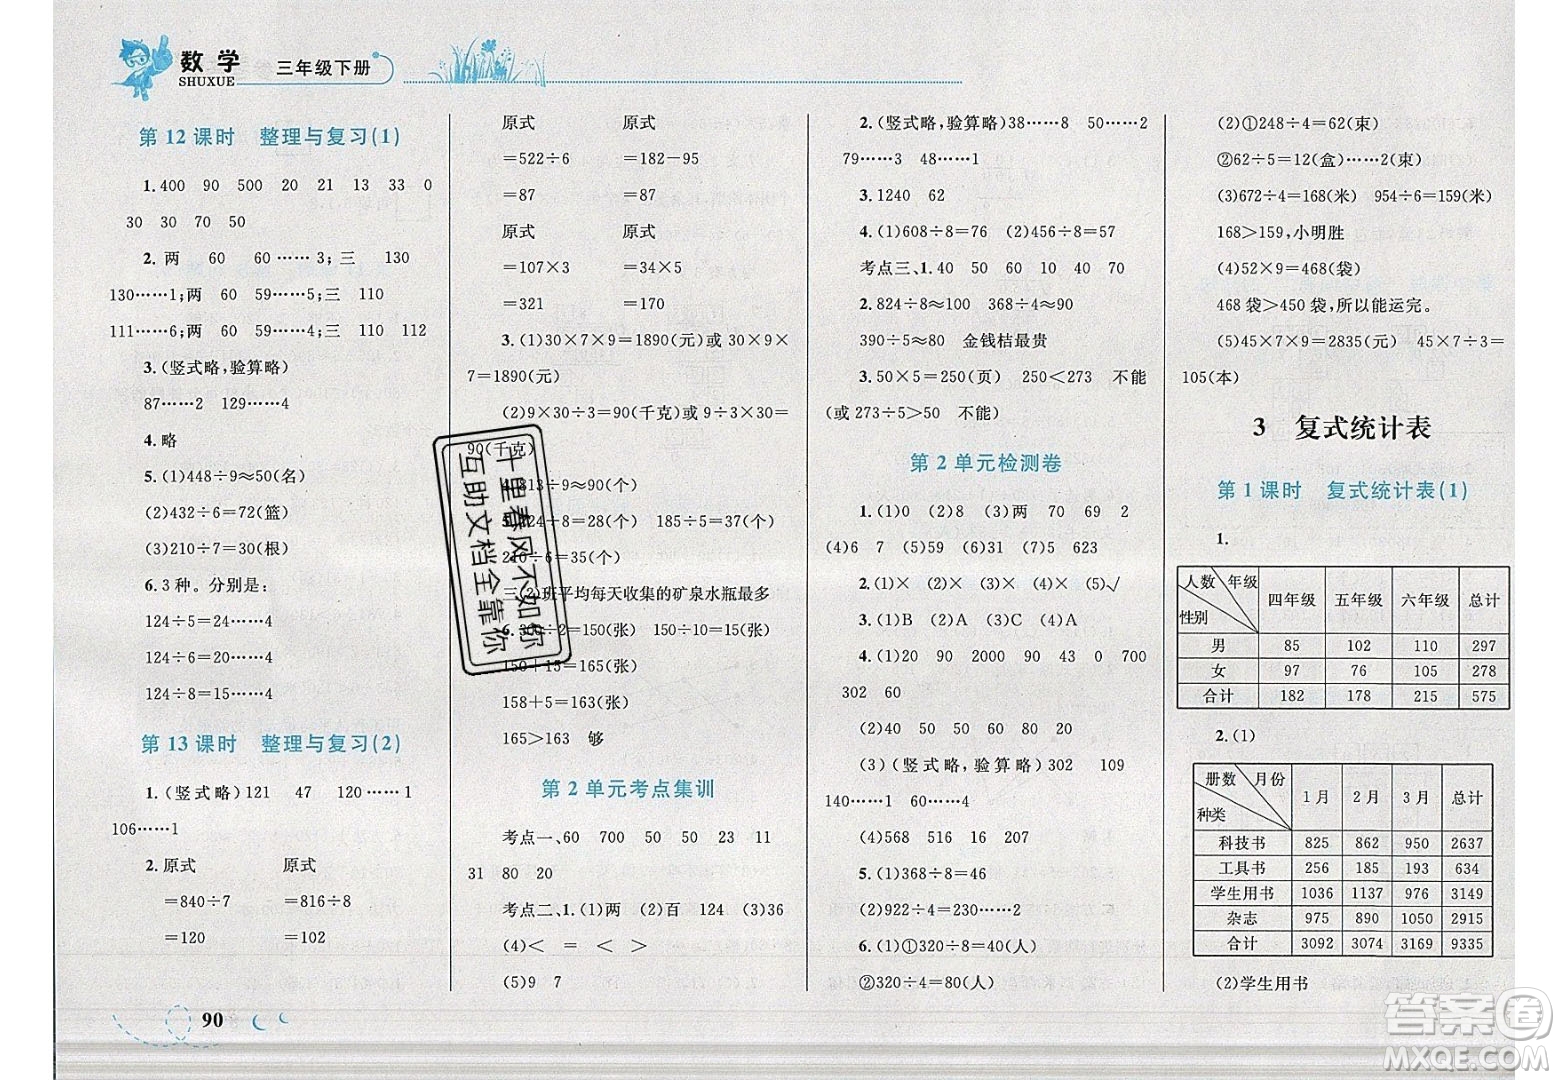 数学
SHUXUE
三年级下册
第 12 课时 整理与复习(1)
1.400 90 500 20 21 13 33 0
30 30 70 50
2. 两 60 60……3;三 130
130……1;两 60 59……5;三 110
111……6;两 60 59……4;三 110 112
3.(竖式略,验算略)
87……2 129……4
4.略
5.(1)448÷9≈50(名)
(2)432÷6=72(篮)
(3)210÷7=30(根)
6.3 种。分别是:
124÷5=24……4
124÷6=20……4
124÷8=15……4
第 13 课时 整理与复习(2)
1.(竖式略)121 47 120……1
106……1
2.原式 原式
=840÷7 =816÷8
=120 =102
90
原式 原式
=522÷6 =182-95
=87 =87
原式 原式
=107×3 =34×5
=321 =170
3.(1)30×7×9=1890(元)或 30×9×
7=1890(元)
(2)9×30÷3=90(千克)或 9÷3×30=
90(千克)
813÷9≈90(个)
÷8=28(个) 185÷5=37(个)
÷6=35(个)
三(2)班平均每天收集的矿泉水瓶最多
÷2=150(张) 150÷10=15(张)
150+15=165(张)
158+5=163(张)
165>163 够
十里春风不如你
互助文档全靠你
第 2 单元考点集训
考点一、60 700 50 50 23 11
31 80 20
考点二、1.(1)两 (2)百 124 (3)36
(4)< = < >
(5)9 7
2.(竖式略,验算略)38……8 50……2
79……3 48……1
3.1240 62
4.(1)608÷8=76 (2)456÷8=57
考点三、1.40 50 60 10 40 70
2.824÷8≈100 368÷4≈90
390÷5≈80 金钱桔最贵
3.50×5=250(页) 250<273 不能
(或 273÷5>50 不能)
第 2 单元检测卷
1.(1)0 (2)8 (3)两 70 69 2
(4)6 7 (5)59 (6)31 (7)5 623
2.(1)× (2)× (3)× (4)× (5)√
3.(1)B (2)A (3)C (4)A
4.(1)20 90 2000 90 43 0 700
302 60
(2)40 50 50 60 80 20
(3)(竖式略,验算略)302 109
140……1 60……4
(4)568 516 16 207
5.(1)368÷8=46
(2)922÷4=230……2
6.(1)①320÷8=40(人)
②320÷4=80(人)
(2)①248÷4=62(束)
②62÷5=12(盒)……2(束)
(3)672÷4=168(米) 954÷6=159(米)
168>159,小明胜
(4)52×9=468(袋)
468 袋>450 袋,所以能运完。
(5)45×7×9=2835(元) 45×7÷3=
105(本)
3 复式统计表
第 1 课时 复式统计表(1)
1.
人数 年级 性别 四年级 五年级 六年级 总计
男 85 102 110 297
女 97 76 105 278
合计 182 178 215 575
2.(1)
册数 月份 种类 1 月 2 月 3 月 总计
科技书 825 862 950 2637
工具书 256 185 193 634
学生用书 1036 1137 976 3149
杂志 975 890 1050 2915
合计 3092 3074 3169 9335
(2)学生用书
答案圈
MXQE.COM